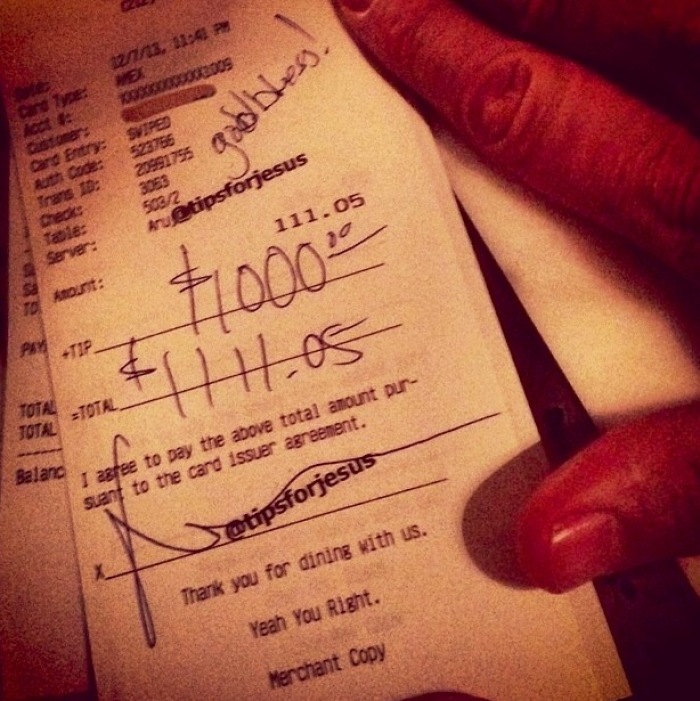 Date: 12/7/13, 11:41 PM
Card Type: AMEX
Acct #: XXXXXXXXXXX1009
Customer:
Card Entry: SWIPED
Auth Code: 523766
Trans ID: 20991755
Check: 3063
Table: 503/2
Server: Aru
god bless!
@tipsforjesus
Amount: 111.05
+TIP $1000.00
=TOTAL $1111.05
I agree to pay the above total amount pur-
suant to the card issuer agreement.
@tipsforjesus
X
Thank you for dining with us.
Yeah You Right.
Merchant Copy
PAY
TOTAL
TOTAL
Balanc